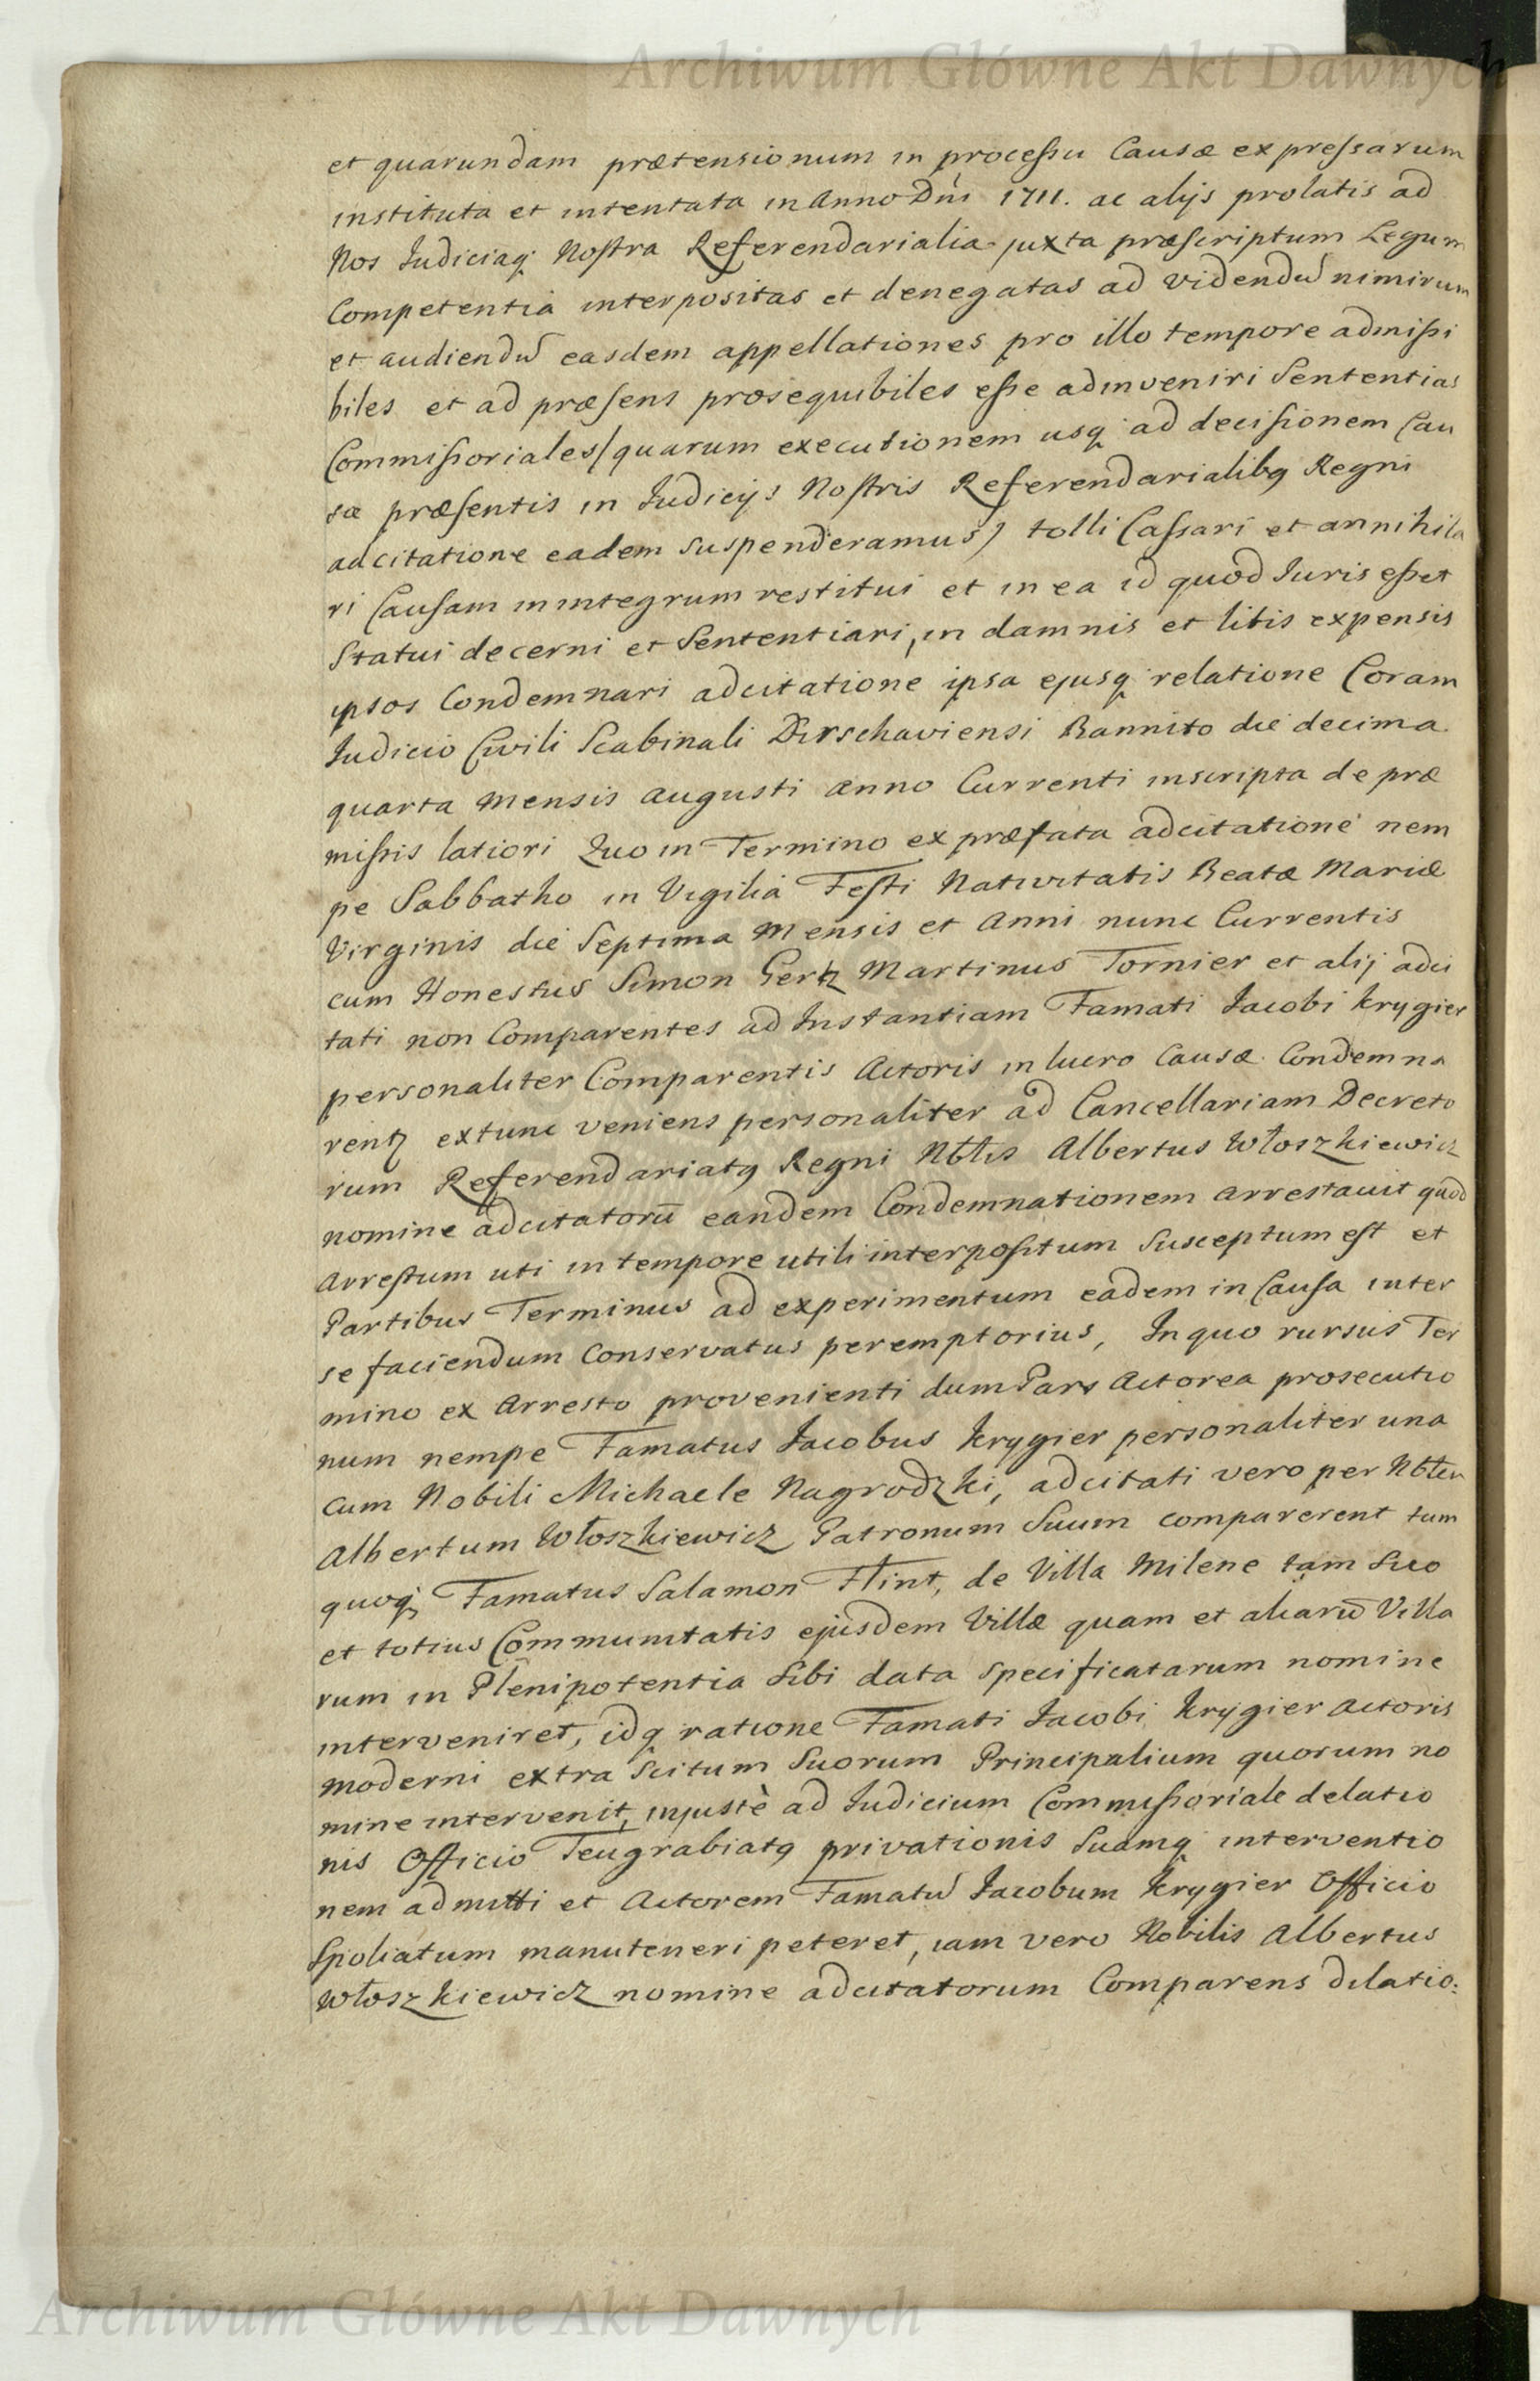 Archiwum Główne Akt Dawnych
et quarundam prætensionum in processu Causæ expressarum
instituta et intentata in Anno Dni 1711. ac alijs prolatis ad
Nos Judiciaq; Nostra Referendarialia juxta præscriptum Legum
Competentia interpositas et denegatas ad videndũ nimirum
et audiendũ easdem appellationes pro illo tempore admissi
biles et ad præsens prosequibiles esse adinveniri Sententias
Commissoriales/quarum executionem usq; ad decisionem Cau
sæ præsentis in Judicijs Nostris Referendarialibq Regni
adcitatione eadem suspenderamus) tolli Cassari et annihila
ri Causam in integrum restitui et in ea id quod Juris esset
Statui decerni et Sententiari, in damnis et litis expensis
ipsos Condemnari adcitatione ipsa ejusq; relatione Coram
Judicio Civili Scabinali Dirschaviensi Bannito die decima
quarta mensis augusti anno Currenti inscripta de præ
missis latiori Quo in Termino ex præfata adcitatione nem
pe Sabbatho in Vigilia Festi Nativitatis Beatæ Mariæ
Virginis die Septima Mensis et Anni nunc Currentis
cum Honestus Simon Gertz Martinus Tornier et alij adci
tati non Comparentes ad Instantiam Famati Jacobi Krygier
personaliter Comparentis Actoris in lucro Causæ Condemna
rentq extunc veniens personaliter ad Cancellariam Decreto
rum Referendariatq Regni Nbłis Albertus Włoszkiewicz
nomine adcitatorũ eandem Condemnationem arrestavit quod
Arrestum uti in tempore utili interpositum Susceptum est et
Partibus Terminus ad experimentum eadem in Causa inter
se faciendum Conservatus peremptorius, In quo rursus Ter
mino ex Arresto provenienti dum Pars Actorea prosecutio
num nempe Famatus Jacobus Krygier personaliter una
cum Nobili Michaele Nagrodzki, adcitati vero per Nbłem
Albertum Włoszkiewicz Patronum Suum comparerent tum
quoq; Famatus Salamon Flint, de Villa Milene tam suo
et totius Communitatis ejusdem Villæ quam et aliarũ Villa
rum in Plenipotentia sibi data specificatarum nomine
interveniret, idq; ratione Famati Jacobi Krygier actoris
moderni extra Scitum Suorum Principalium quorum no
mine intervenit, injustè ad Judicium Commissoriale delatio
nis Officio Teugrabiatq privationis Suamq; interventio
nem admitti et Actorem Famatũ Jacobum Krygier Officio
Spoliatum manuteneri peteret, iam vero Nobilis Albertus
Włoszkiewicz nomine adcitatorum Comparens dilatio:
Archiwum Główne Akt Dawnych